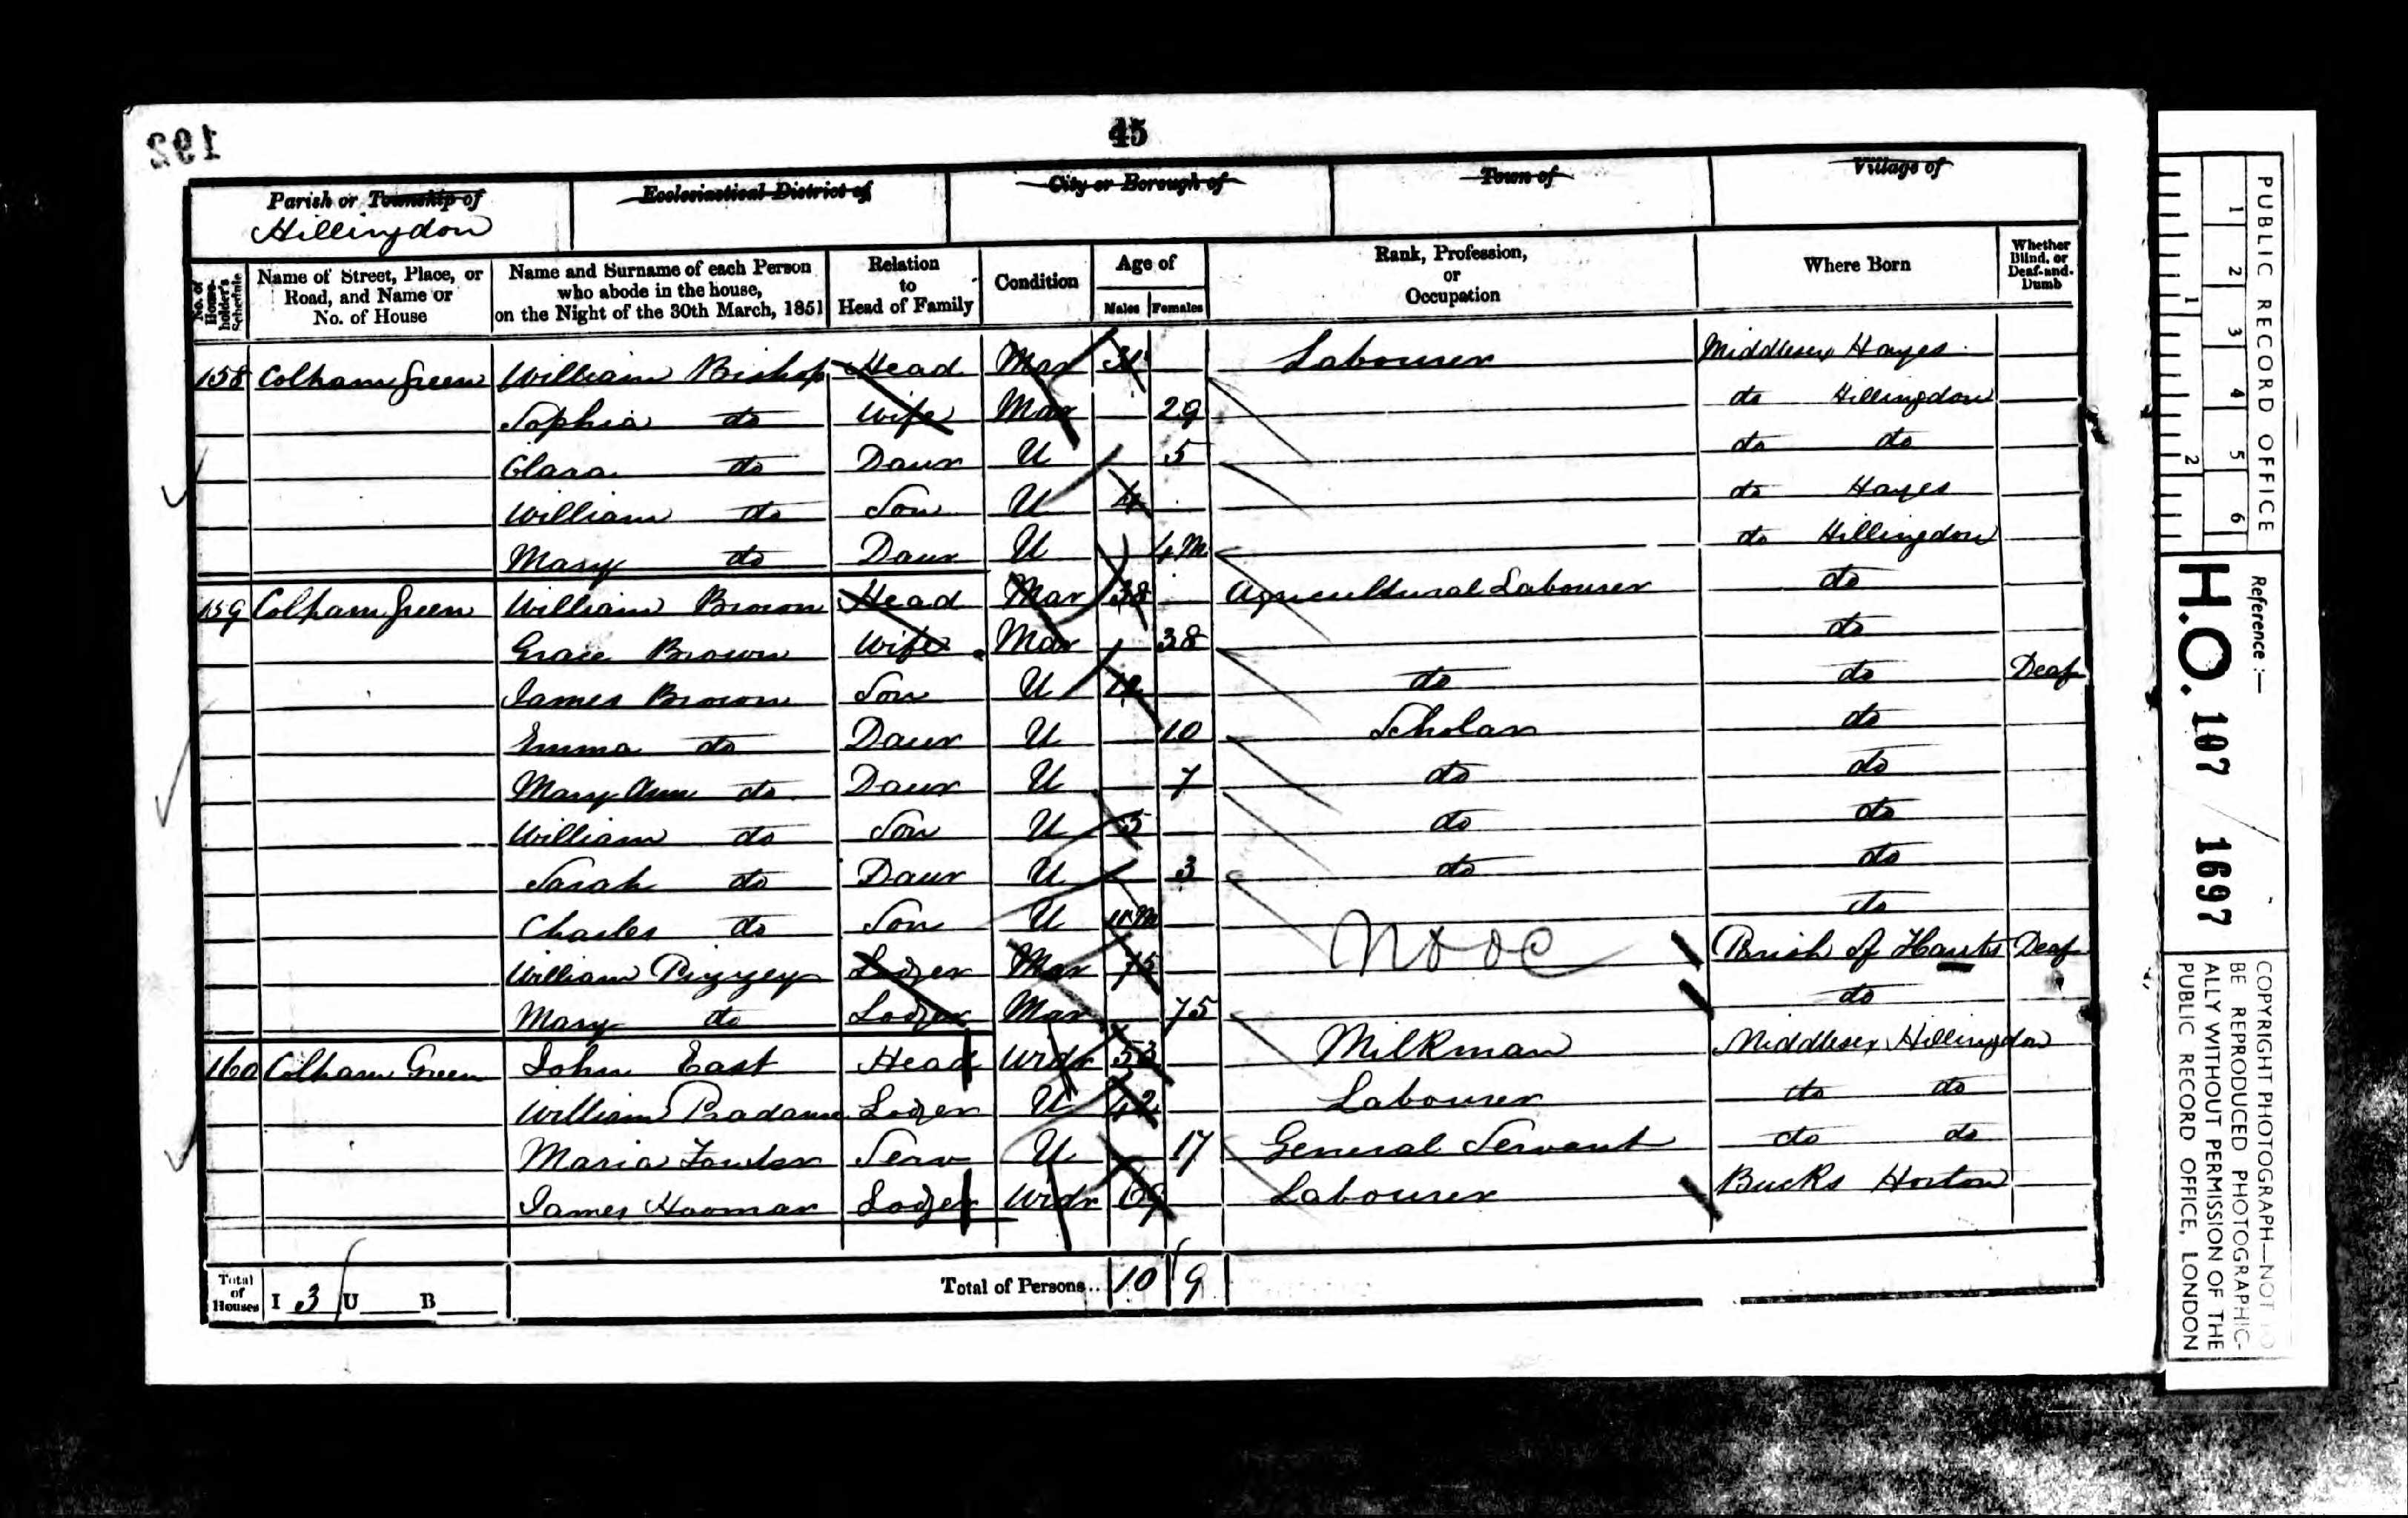 192
45
Parish or Township of Ecclesiastical District of City or Borough of Town of Village of
Hillingdon
No. of Householder's Schedule Name of Street, Place, or Road, and Name or No. of House Name and Surname of each Person who abode in the house, on the Night of the 30th March, 1851 Relation to Head of Family Condition Age of Males Females Rank, Profession, or Occupation Where Born Whether Blind, or Deaf-and-Dumb
158 Colham Green William Bishop Head Mar Labourer Middlesex Hayes
Sophia do Wife Mar 29 do Hillingdon
Clara do Daur U 5 do do
William do Son U 4 do Hayes
Mary do Daur U 4 M do Hillingdon
159 Colham Green William Brown Head Mar 38 Agricultural Labourer do
Grace Brown Wife Mar 38 do
James Brown Son U do do Deaf
Emma do Daur U 10 Scholar do
Mary Ann do Daur U 7 do do
William do Son U 5 do do
Sarah do Daur U 3 do do
Charles do Son U 11 M do
William Pizzey Lodger Mar 75 Parish of Hants Deaf
Mary do Lodger Mar 75 do
160 Colham Green John East Head Widr Milkman Middlesex Hillingdon
William Lodger U 42 Labourer do do
Maria Serv U 17 General Servant do do
James Lodger Widr 69 Labourer Bucks Horton
Total of Houses I 3 U B Total of Persons.. 10 9
PUBLIC RECORD OFFICE
1 2 3 4 5 6
1 2
Reference :—
H.O. 107 / 1697
COPYRIGHT PHOTOGRAPH—NOT TO BE REPRODUCED PHOTOGRAPHIC-
ALLY WITHOUT PERMISSION OF THE
PUBLIC RECORD OFFICE, LONDON